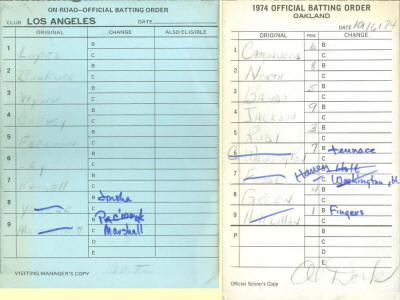 ON ROAD–OFFICIAL BATTING ORDER
CLUB LOS ANGELES DATE
ORIGINAL CHANGE ALSO ELIGIBLE
1 Lopes B
C
2 Buckner B
C
3 Wynn B
C
4 Garvey B
C
5 Ferguson B
C
6 Cey B
C
7 Russell B
C
8 Yeager B Joshua
C Paciorek
9 B Marshall
C
D
E
VISITING MANAGER'S COPY
1974 OFFICIAL BATTING ORDER
OAKLAND
DATE 10/16/74
ORIGINAL POS. CHANGE
1 Campaneris 6 B
C
2 North 8 B
C
3 Bando 5 B
C
4 Jackson 9 B
C
5 Rudi B
C
6 Washington 7 B Tennace
C Holt
7 B
C Washington, H
8 Green 4 B
C
9 Holtzman 1 B Fingers
C
P
C
D
E
Official Scorer's Copy
Al Dark